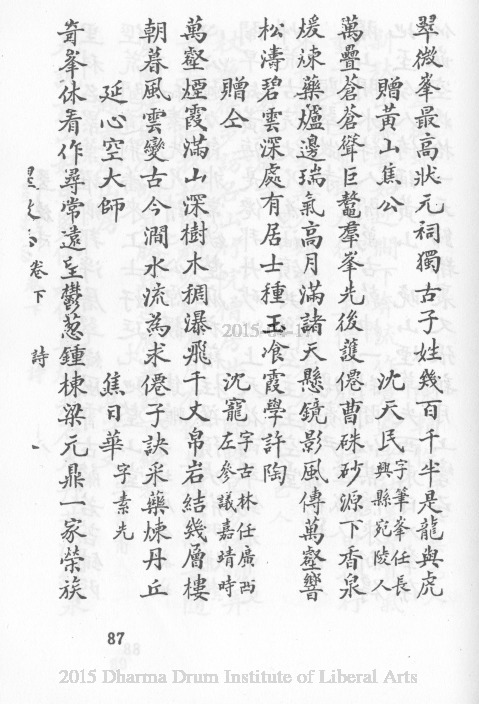 翠微峯最高狀元祠獨古子姓幾百千半是龍與虎
贈黃山焦公 沈天民 字筆峯任長興縣宛陵人
萬疊蒼蒼聳巨鼇羣峯先後護僊曹硃砂源下香泉
煖煉藥爐邊瑞氣高月滿諸天懸鏡影風傳萬壑響
松濤碧雲深處有居士種玉飡霞學許陶
贈仝 沈寵 字古林任廣西左參議嘉靖時
萬壑煙霞滿山深樹木稠瀑飛千丈帛岩結幾層樓
朝暮風雲變古今澗水流為求僊子訣采藥煉丹丘
延心空大師 焦日華 字素先
奇峯休看作尋常遠呈鬱葱鍾棟梁元鼎一家榮族
卷下 詩 一
87
2015-04-17
2015 Dharma Drum Institute of Liberal Arts